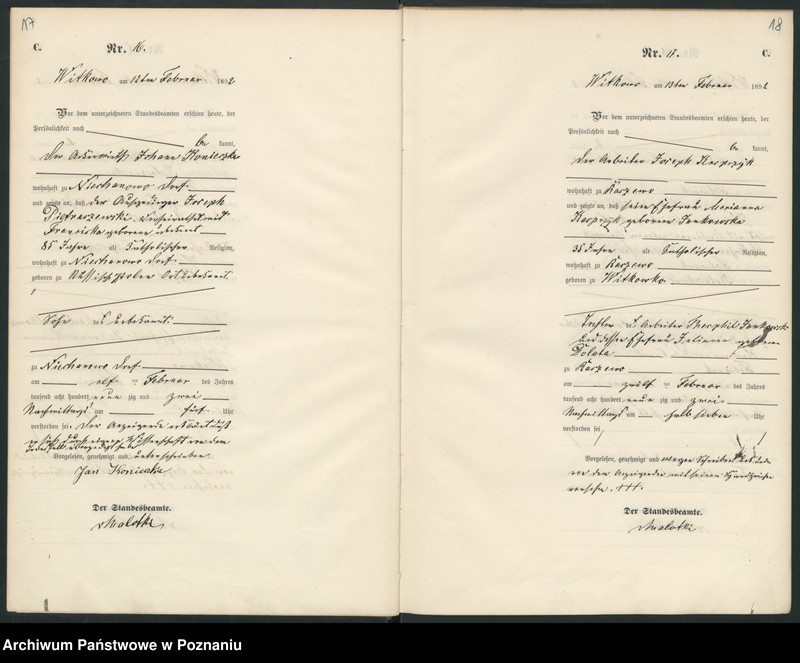 17
C.
Nr. 16.
Witkowo am 12ten Februar 1892
Vor dem unterzeichneten Standesbeamten erschien heute, der
Persönlichkeit nach
be kannt,
der Johann Konieczka
wohnhaft zu Niechanowo Dorf
und zeigte an, daß der Joseph
Pietraszewski. Verheirathet mit
Franciska geborene unbekannt
85 Jahre alt katholischer Religion,
wohnhaft zu Niechanowo Dorf
geboren zu Russisch Polen Ort unbekannt.
Sohn des unbekannt.
zu Niechanowo Dorf
am elf ten Februar des Jahres
tausend acht hundert neun zig und zwei
Nachmittags um fünf Uhr
verstorben sei. Der Anzeigende erklärt daß
er
Vorgelesen, genehmigt und unterschrieben
Jan Konieczka
Der Standesbeamte.
Malotki
18
Nr. 17.
C.
Witkowo am 13ten Februar 1892
Vor dem unterzeichneten Standesbeamten erschien heute, der
Persönlichkeit nach
be kannt,
der Arbeiter Joseph Kasprzyk
wohnhaft zu Karzewo
und zeigte an, daß seine Ehefrau Marianna
Kasprzyk geborene Jankowska
35 Jahre alt katholischer Religion,
wohnhaft zu Karzewo
geboren zu Witkowko
Tochter des Arbeiter Theophil Jankowski
und dessen Ehefrau Juliana geborene
Dolata
zu Karzewo
am zwölf ten Februar des Jahres
tausend acht hundert neun zig und zwei
Nachmittags um halb sieben Uhr
verstorben sei
Vorgelesen, genehmigt und wegen Schreibens
von dem Anzeigenden mit seinem Handzeichen
versehen. +++.
Der Standesbeamte.
Malotki
Archiwum Państwowe w Poznaniu